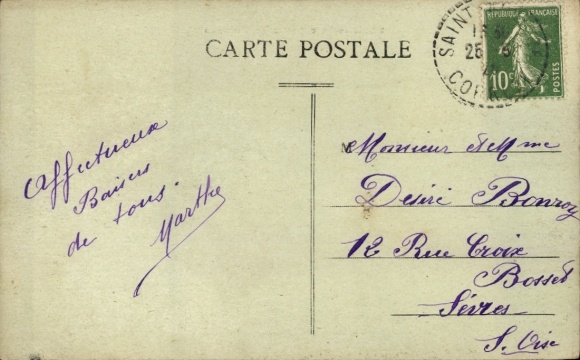 CARTE POSTALE
SAINT
25
COR
REPUBLIQUE FRANÇAISE
10c
POSTES
Affectueux
Baisers
de tous.
Marthe
Monsieur et Mme
Désiré Bonroy
12 Rue Croix
Bosset
Sèvres
S. Oise